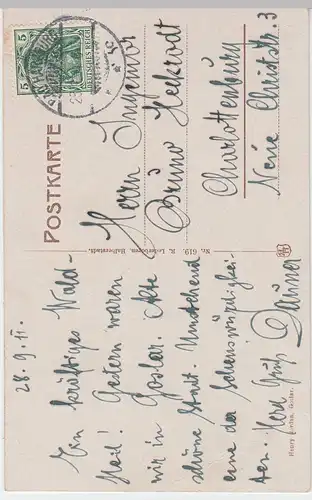 POSTKARTE
5
5
DEUTSCHES REICH
Herrn Ingenior
Bruno Heckrodt
Charlottenburg
Neue Christstr. 3
Nr. 619. R. Lederbogen, Halberstadt.
28. 9. 11.
Ein kräftiges Wald-
Heil! Gestern waren
wir in Goslar. Alte
schöne Stadt. Umstehend
eine der Sehenswürdigkei-
ten. Herzl. Gruß
Goslar.